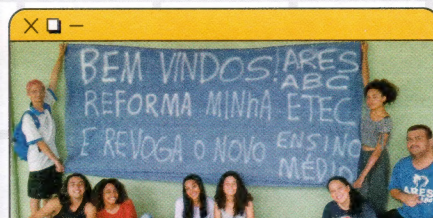 BEM VINDOS! ARES
ABC
REFORMA MINHA ETEC
E REVOGA O NOVO ENSINO
MÉDIO
ARES
ABC